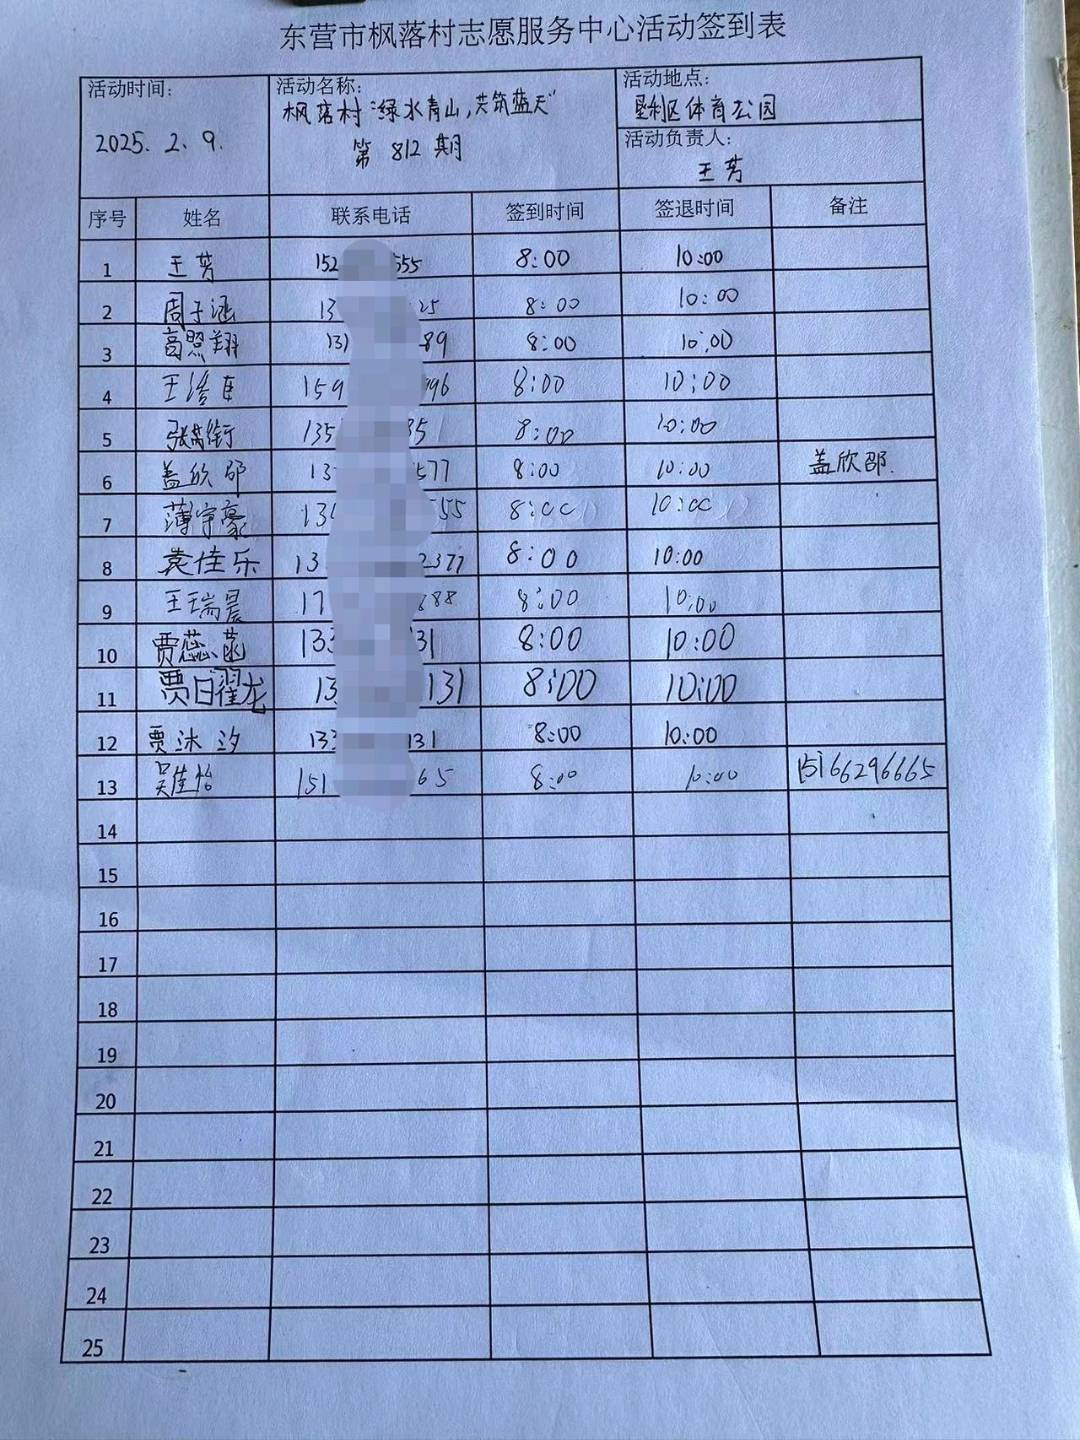 东营市枫落村志愿服务中心活动签到表
活动时间: 活动名称: 活动地点:
2025.2.9. 枫落村“绿水青山,共筑蓝天” 垦利区体育公园
第812期 活动负责人:
王芳
序号 姓名 联系电话 签到时间 签退时间 备注
1 王芳 152 555 8:00 10:00
2 周子涵 13 25 8:00 10:00
3 高照翔 131 89 8:00 10:00
4 王 159 96 8:00 10:00
5 张 135 35 8:00 10:00
6 盖欣邵 13 577 8:00 10:00 盖欣邵.
7 薄宇豪 13 555 8:00 10:00
8 袁佳乐 13 2377 8:00 10:00
9 王瑞晨 17 888 8:00 10:00
10 贾蕊菡 133 131 8:00 10:00
11 贾日翟龙 13 131 8:00 10:00
12 贾沐汐 133 131 8:00 10:00
13 吴佳怡 151 65 8:00 10:00 15166296665
14
15
16
17
18
19
20
21
22
23
24
25